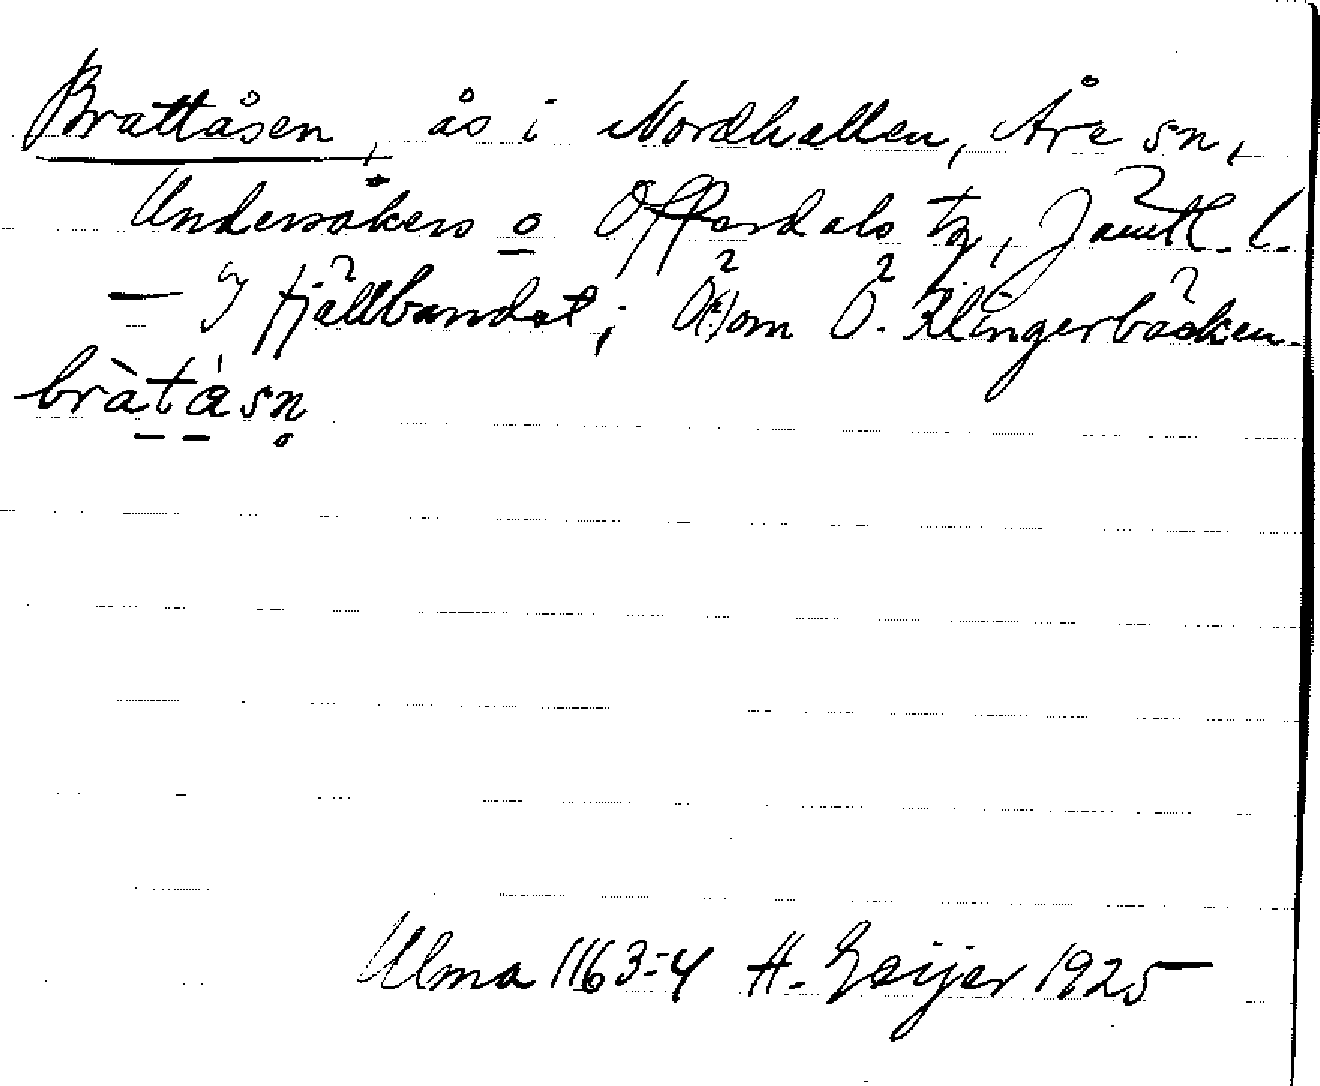 Brattåsen, ås i Nordhallen, Åre sn,
Undersåkers o Offerdals tg, Jämtl. l.
— I fjällbandet; Ö(?)om Ö. Klingerbäcken.
bràtásn̥
Ulma 116 3:4 H. Geijer 1925